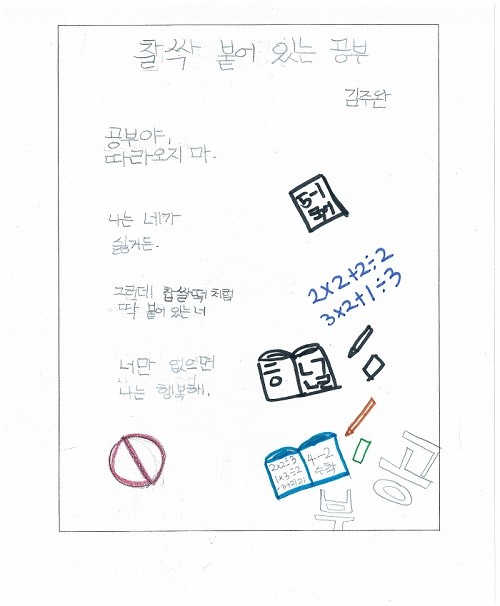 찰싹 붙어 있는 공부
김주완
공부야,
따라오지 마.
나는 네가
싫거든.
그런데 찹쌀떡 처럼
딱 붙어 있는 너
너만 없으면
나는 행복해.
5-1
국어
2×2+2÷2
3×2+1÷3
2×2÷3
1×3÷2
4-2
수학
공
부